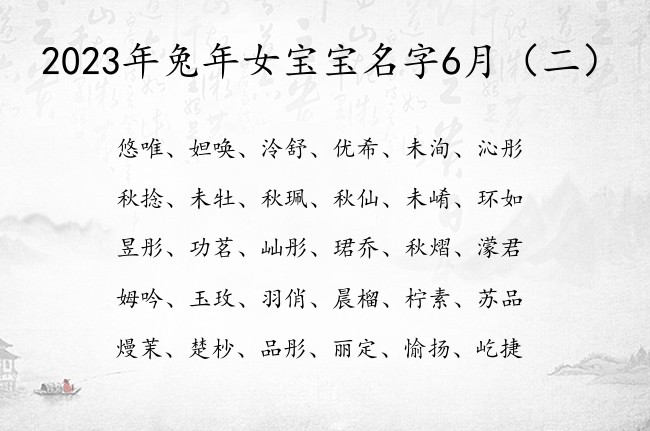 2023年兔年女宝宝名字6月（二）
悠唯、妲唤、泠舒、优希、未洵、沁彤
秋捻、未牡、秋珮、秋仙、未崤、环如
昱彤、功茗、屾彤、珺乔、秋熠、濛君
姆吟、玉玫、羽俏、晨榴、柠素、苏品
熳茉、楚杪、品彤、丽定、愉扬、屹捷